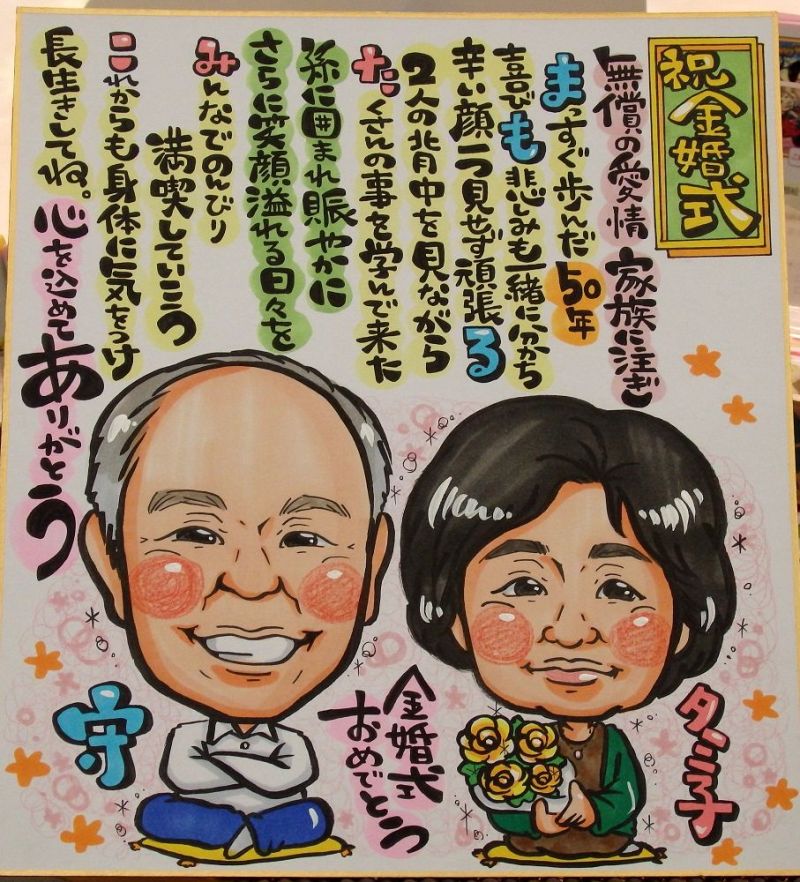 祝金婚式
無償の愛情 家族に注ぎ
まっすぐ歩んだ50年
喜びも悲しみも一緒に分かち
辛い顔一つ見せず頑張る
2人の背中を見ながら
たくさんの事を学んで来た
孫に囲まれ賑やかに
さらに笑顔溢れる日々を
みんなでのんびり
満喫していこう
これからも身体に気をつけ
長生きしてね。心を込めてありがとう
守
金婚式
おめでとう
タミ子